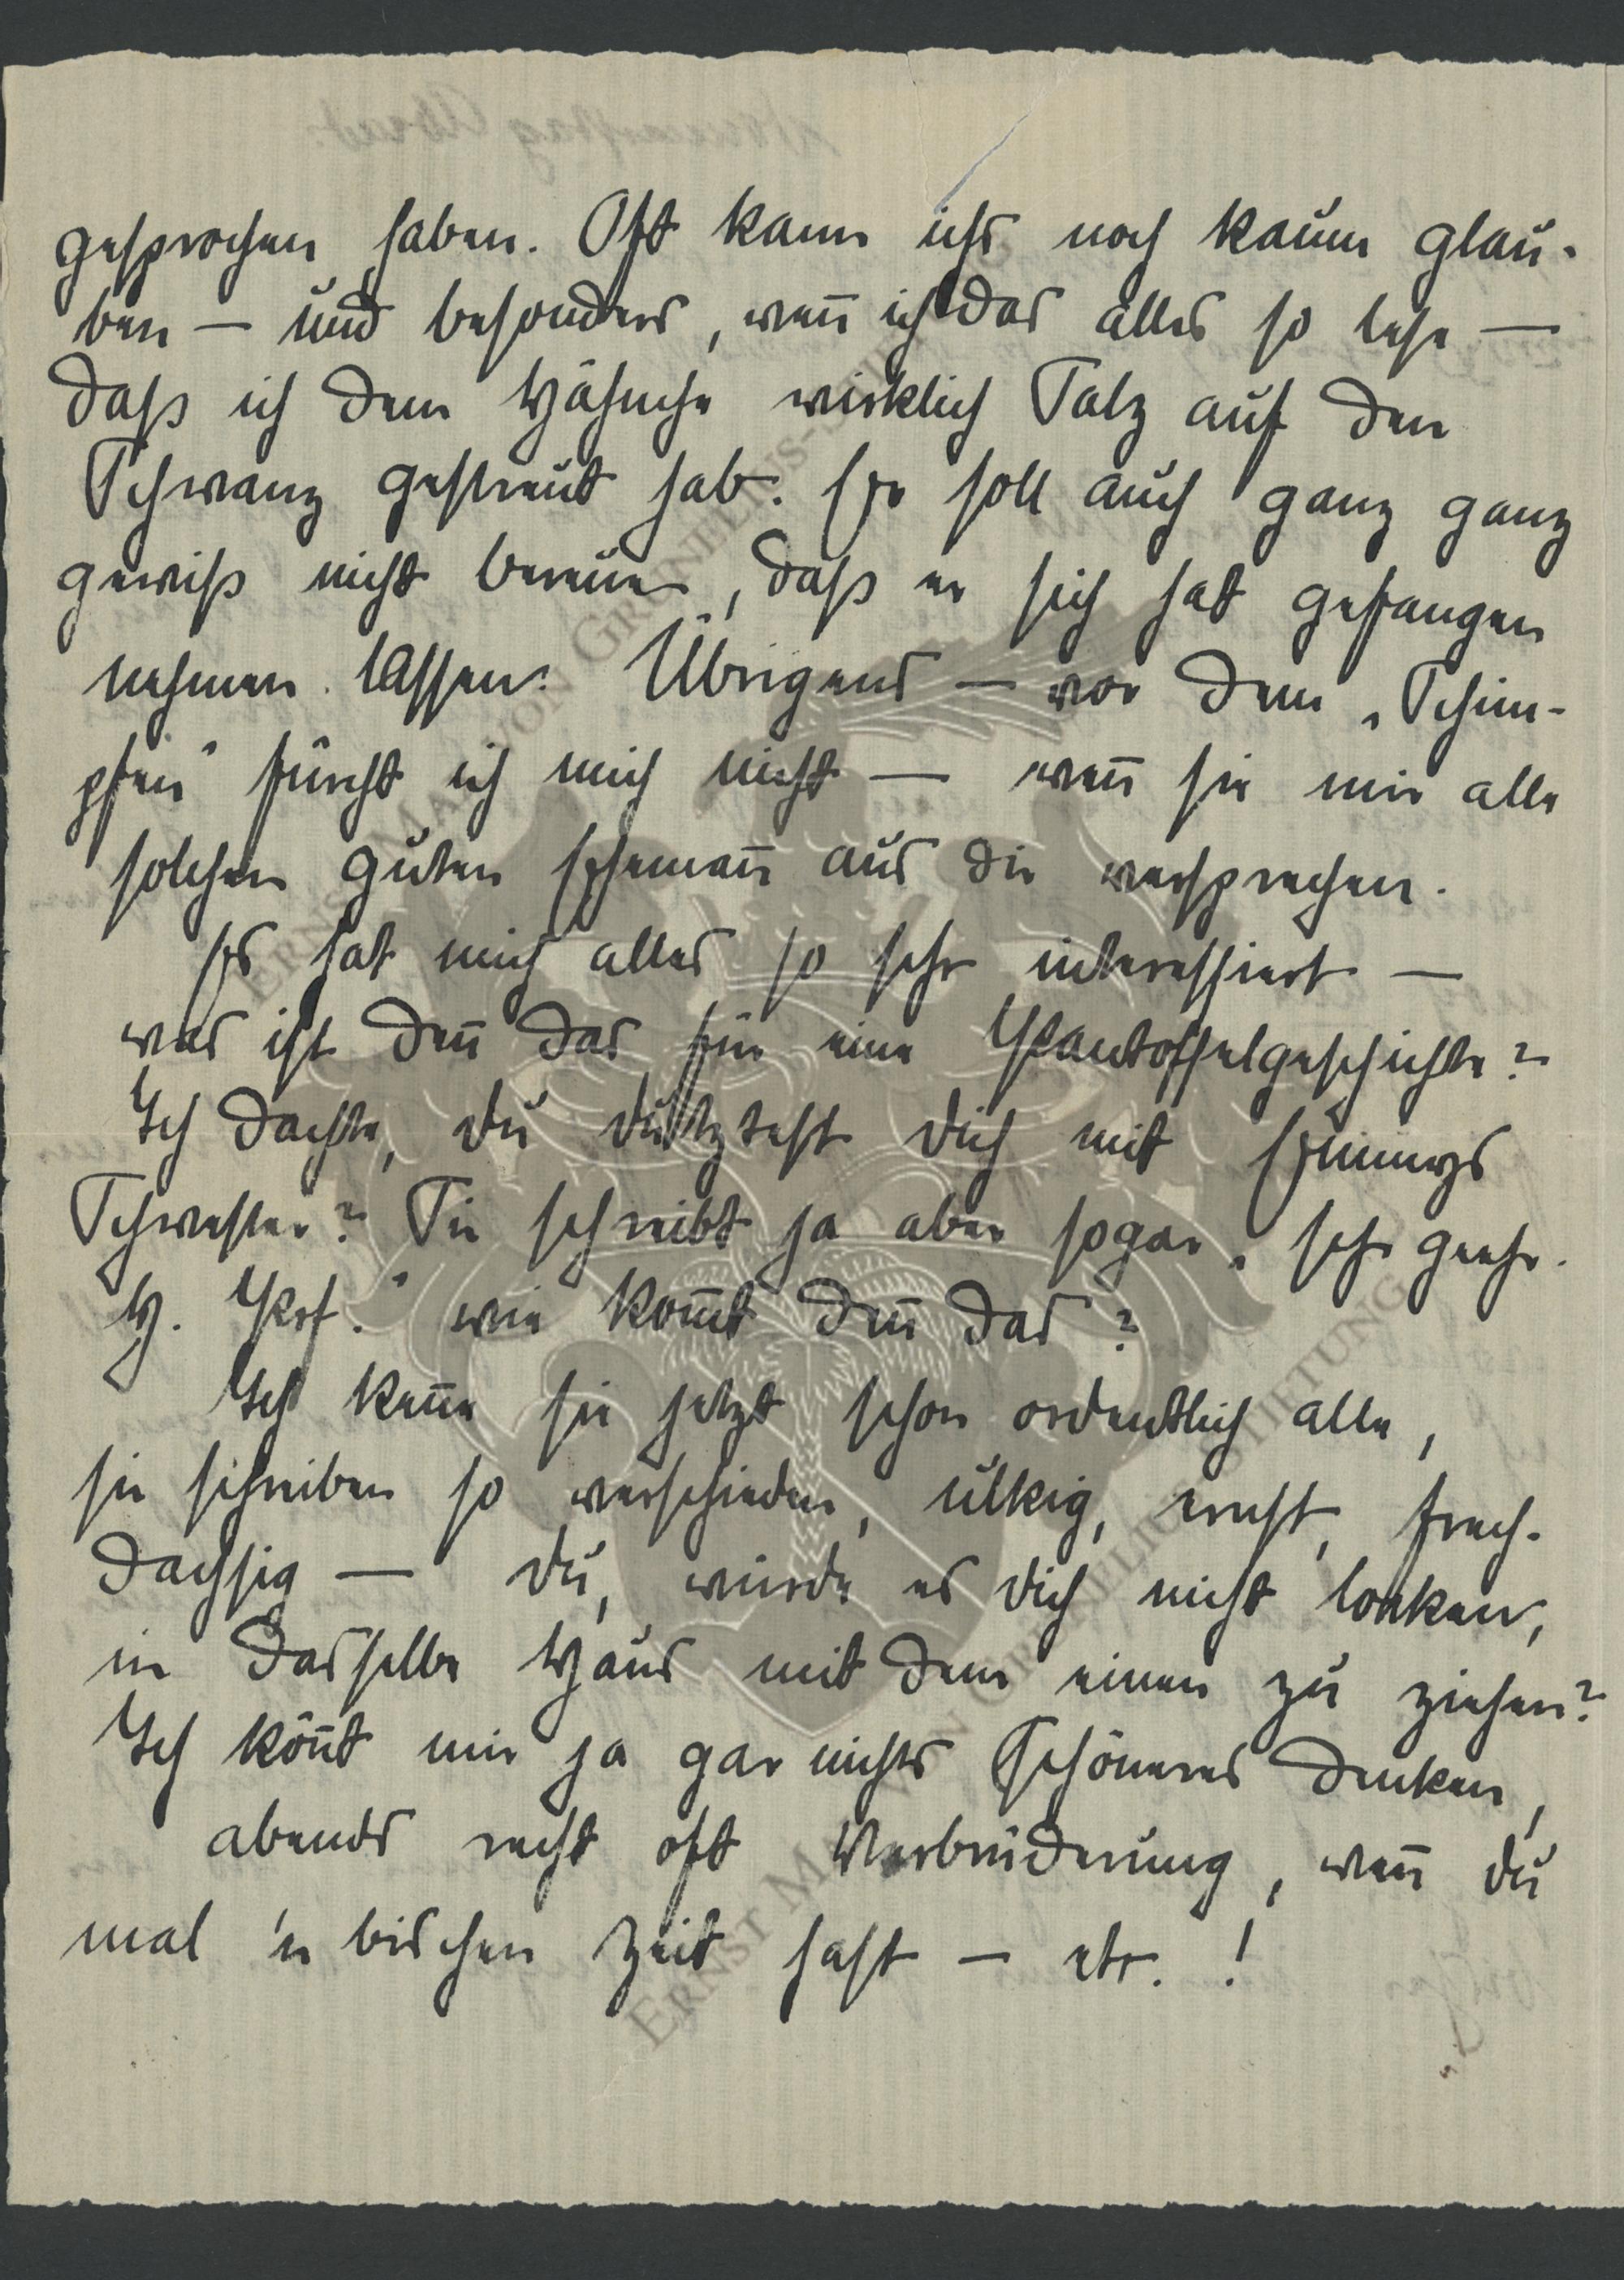 gesprochen haben. Oft kann ichs noch kaum glau-
ben — und besonders, weñ ich das alles so lese —
daß ich dem Hähnche wirklich Salz auf den
Schwanz gestreut hab. Er soll auch ganz ganz
gewiß nicht bereuen, daß er sich hat gefangen
nehmen lassen. Übrigens — vor dem „Schim-
pfen" fürcht ich mich nicht — weñ sie mir alle
solchen guten Ehemañ aus dir versprechen.
Es hat mich alles so sehr interessiert —
was ist deñ das für eine Pantoffelgeschichte?
Ich dachte, du dutztest dich mit
Schwester? Sie schreibt ja aber sogar „sehr geehr.
H. Prf." wie kom̄t deñ das?
Ich keñe sie jetzt schon ordentlich alle,
sie schreiben so verschieden, ulkig, ernst, frech-
dachsig — du, würde es dich nicht locken,
in dasselbe Haus mit dem einen zu ziehen?
Ich köñt mir ja gar nichts Schöneres denken,
abends recht oft Verbrüderung, weñ du
mal 'n bischen Zeit hast — etc. !
ERNST MAX VON GRUNELIUS-STIFTUNG
ERNST MAX VON GRUNELIUS-STIFTUNG